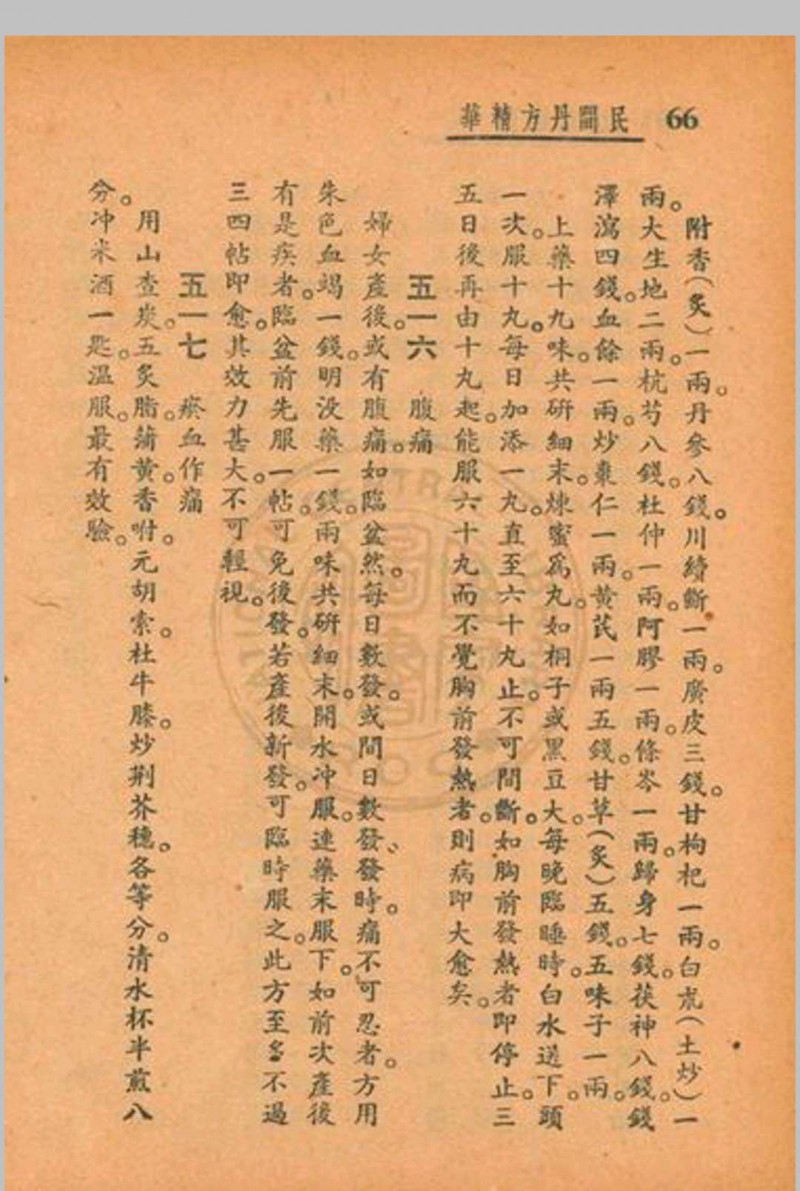 民間丹方精華 66
附香（炙）一兩。丹參八錢。川續斷一兩。廣皮三錢。甘枸杞一兩。白朮（土炒）一
兩。大生地二兩。杭芍八錢。杜仲一兩。阿膠一兩。條芩一兩。歸身七錢。茯神八錢。錢
澤瀉四錢。血餘一兩。炒棗仁一兩。黃芪一兩五錢。甘草（炙）五錢。五味子一兩。
上藥十九味。共研細末。煉蜜爲丸。如桐子或黑豆大。每晚臨睡時。白水送下。頭
一次。服十丸。每日加添一丸。直至六十丸止。不可間斷。如胸前發熱者。即停止。三
五日後再由十丸起。能服六十丸而不覺胸前發熱者。則病即大愈矣。
五一六　腹痛
婦女產後。或有腹痛。如臨盆然。每日數發。或間日數發、發時。痛不可忍者。方用
朱色血竭一錢。明没藥一錢。兩味共研細末。開水冲服。連藥末服下。如前次產後
有是疾者。臨盆前先服一帖。可免後發。若產後新發。可臨時服之。此方至多不過
三四帖即愈。其效力甚大。不可輕視。
五一七　瘀血作痛
用山查炭。五炙脂。蒲黃。香咐。元胡索。杜牛膝。炒荆芥穗。各等分。清水杯半煎八
分。冲米酒一匙。溫服。最有效驗。